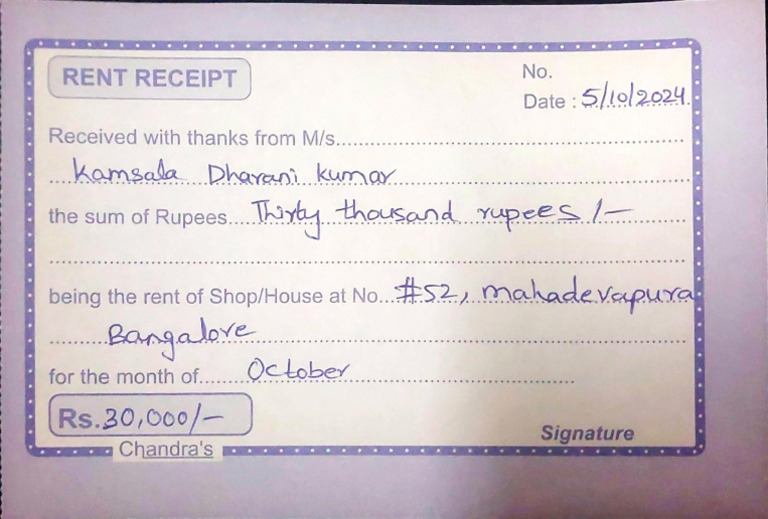 RENT RECEIPT
No.
Date : 5/10/2024
Received with thanks from M/s.
Kamsala Dharani kumar
the sum of Rupees Thirty thousand rupees /-
being the rent of Shop/House at No. #52, mahadevapura
Bangalore
for the month of October
Rs. 30,000/-
Signature
Chandra's